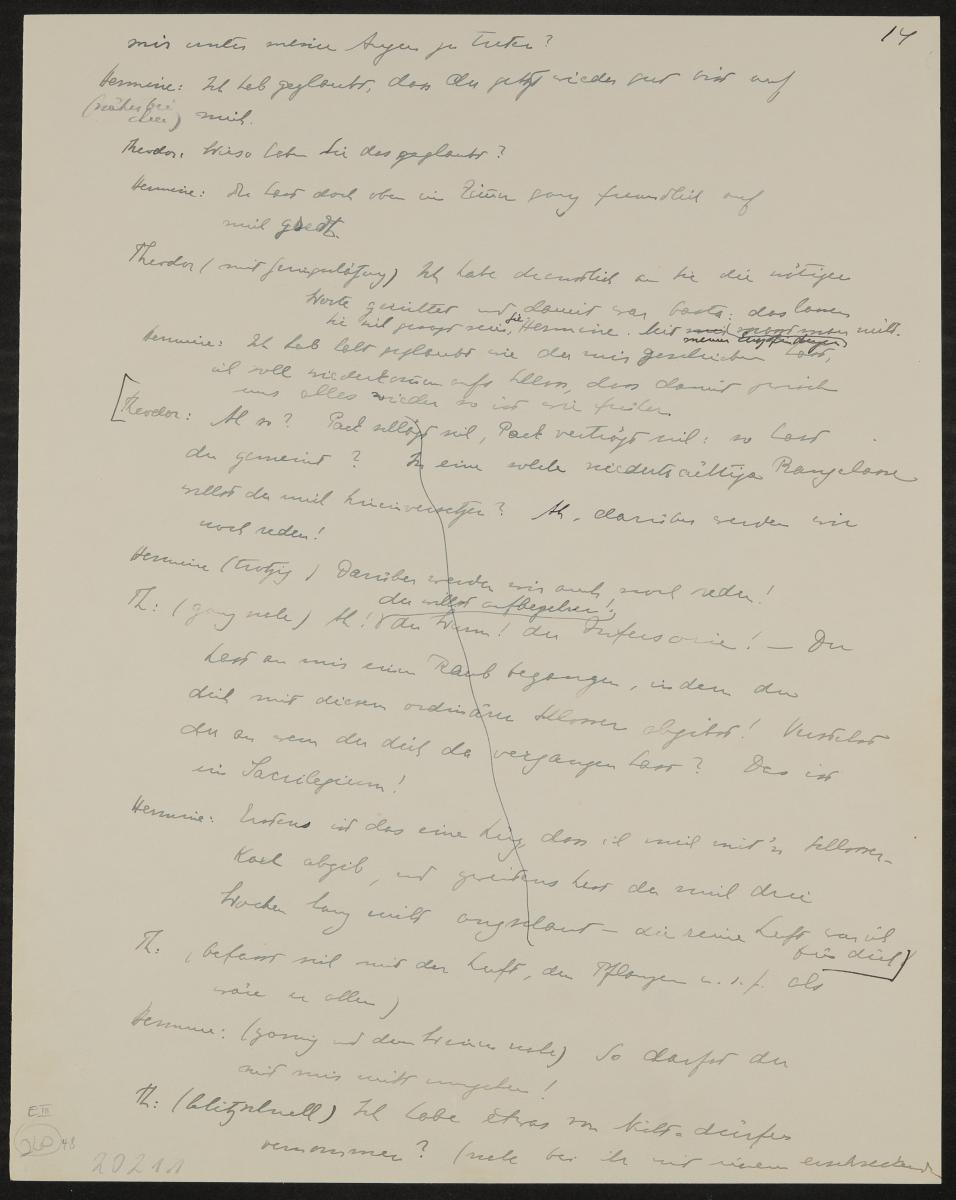 14
mir unter meine Augen zu treten?
Hermine: Ich hab geglaubt, dass du jetzt wieder gut bist auf
(näher bei
mich.
Theodor: Wieso haben Sie das geglaubt?
Hermine: Du hast doch oben im Zimmer ganz freundlich auf
mich
Theodor (mit Genugtuung) Ich habe dienstlich an Sie die nötigen
Worte gerichtet und damit war basta: das lassen
Sie sich gesagt sein, Sie Hermine. Mit nicht.
meinen Empfindungen
Hermine: Ich hab halt geglaubt wie du mir geschrieben hast,
ich soll wiederkommen aufs Schloss, dass damit zwischen
uns alles wieder so ist wie früher.
Theodor: Ah so? Pack schlägt sich, Pack verträgt sich: so hast
du gemeint? In eine solche niederträchtige Rangklasse
willst du mich hineinversetzen? Ah, darüber werden wir
noch reden!
Hermine (trotzig) Darüber werden wir auch noch reden!
du willst aufbegehren!
Th: (ganz nahe) Ah! du Wurm! du Infusorie! — Du
hast an mir einen Raub begangen, indem du
dich mit diesem ordinären Schlosser abgibst! Verstehst
du an wem du dich da vergangen hast? Das ist
ein Sacrilegium!
Hermine: Erstens ist das eine Lüg, dass ich mich mit'n Schlosser-
Karl abgib, und zweitens hast du mich drei
Wochen lang nicht angschaut — die reine Luft war ich
für dich
Th: (befasst sich mit der Luft, den Pflanzen u.s.f. als
wäre er allein)
Hermine: (zornig und dem Weinen nahe) So darfst du
mit mir nicht umgehen!
Th: (blitzschnell) Ich habe etwas von Nicht-dürfen
vernommen? (nahe bei ihr mit einem erschreckenden
E III
48
20211